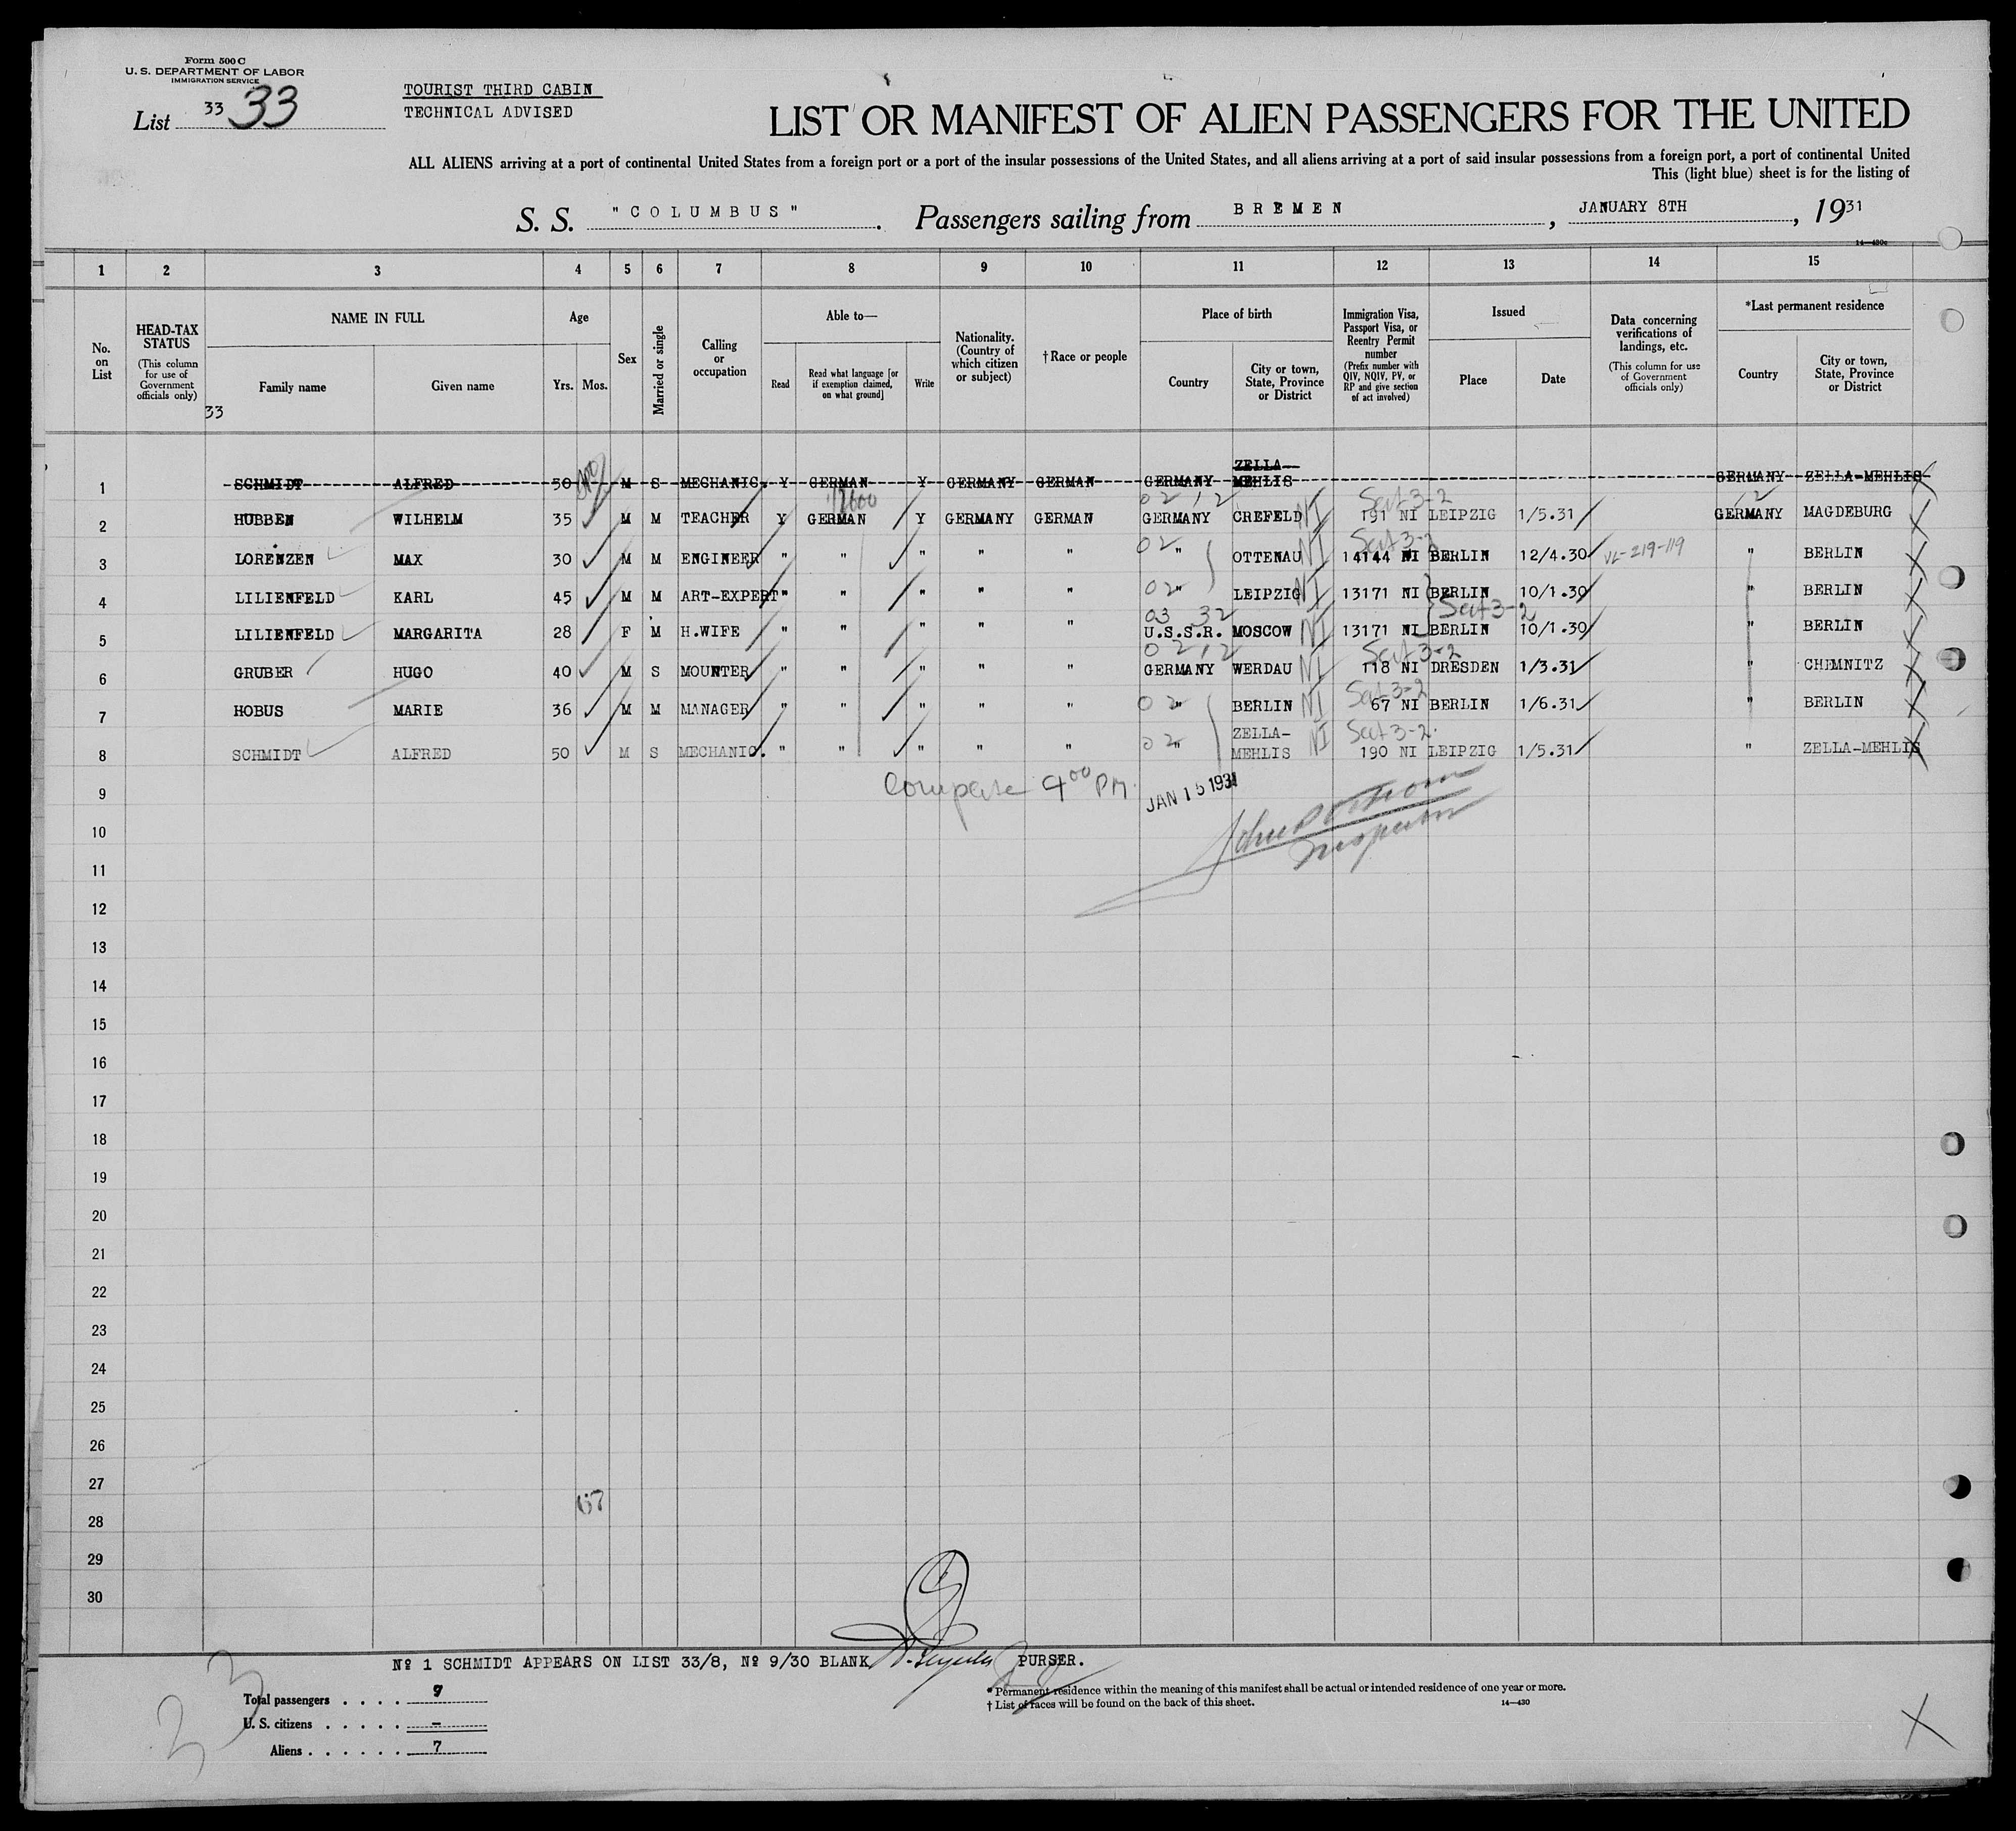 Form 500 C
U. S. DEPARTMENT OF LABOR
IMMIGRATION SERVICE
List 33 33
TOURIST THIRD CABIN
TECHNICAL ADVISED
LIST OR MANIFEST OF ALIEN PASSENGERS FOR THE UNITED
ALL ALIENS arriving at a port of continental United States from a foreign port or a port of the insular possessions of the United States, and all aliens arriving at a port of said insular possessions from a foreign port, a port of continental United
This (light blue) sheet is for the listing of
S. S. "COLUMBUS". Passengers sailing from BREMEN, JANUARY 8TH, 1931
14—430c
1 2 3 4 5 6 7 8 9 10 11 12 13 14 15
No. on List
HEAD-TAX STATUS (This column for use of Government officials only)
NAME IN FULL Family name Given name
Age Yrs. Mos.
Sex
Married or single
Calling or occupation
Able to— Read Read what language [or if exemption claimed, on what ground] Write
Nationality. (Country of which citizen or subject)
† Race or people
Place of birth Country City or town, State, Province or District
Immigration Visa, Passport Visa, or Reentry Permit number (Prefix number with QIV, NQIV, PV, or RP and give section of act involved)
Issued Place Date
Data concerning verifications of landings, etc. (This column for use of Government officials only)
*Last permanent residence Country City or town, State, Province or District
33
1 SCHMIDT ALFRED 50 M S MECHANIC. Y GERMAN Y GERMANY GERMAN GERMANY ZELLA-MEHLIS GERMANY ZELLA-MEHLIS
02 12 Sect 3-2 12
2 HUBBEN WILHELM 35 M M TEACHER Y GERMAN Y GERMANY GERMAN GERMANY CREFELD NI 191 NI LEIPZIG 1/5.31 GERMANY MAGDEBURG
02 Sect 3-2
3 LORENZEN MAX 30 M M ENGINEER " " " " " " OTTENAU NI 14144 NI BERLIN 12/4.30 VL-219-119 " BERLIN
4 LILIENFELD KARL 45 M M ART-EXPERT " " " " " 02 " LEIPZIG NI 13171 NI BERLIN 10/1.30 " BERLIN
03 32 Sect 3-2
5 LILIENFELD MARGARITA 28 F M H.WIFE " " " " " U.S.S.R. MOSCOW NI 13171 NI BERLIN 10/1.30 " BERLIN
02 12 Sect 3-2
6 GRUBER HUGO 40 M S MOUNTER " " " " " GERMANY WERDAU NI 118 NI DRESDEN 1/3.31 " CHEMNITZ
Sect 3-2
7 HOBUS MARIE 36 M M MANAGER " " " " " 02 " BERLIN NI 67 NI BERLIN 1/6.31 " BERLIN
Sect 3-2.
8 SCHMIDT ALFRED 50 M S MECHANIC. " " " " " 02 " ZELLA-MEHLIS NI 190 NI LEIPZIG 1/5.31 " ZELLA-MEHLIS
9 Compare 9 00 PM. JAN 15 1931
10
Inspector
11
12
13
14
15
16
17
18
19
20
21
22
23
24
25
26
27
28
29
30
Nº 1 SCHMIDT APPEARS ON LIST 33/8, Nº 9/30 BLANK PURSER.
Total passengers . . . . 7
U. S. citizens . . . . . –
Aliens . . . . . . 7
* Permanent residence within the meaning of this manifest shall be actual or intended residence of one year or more.
† List of races will be found on the back of this sheet. 14—430
23